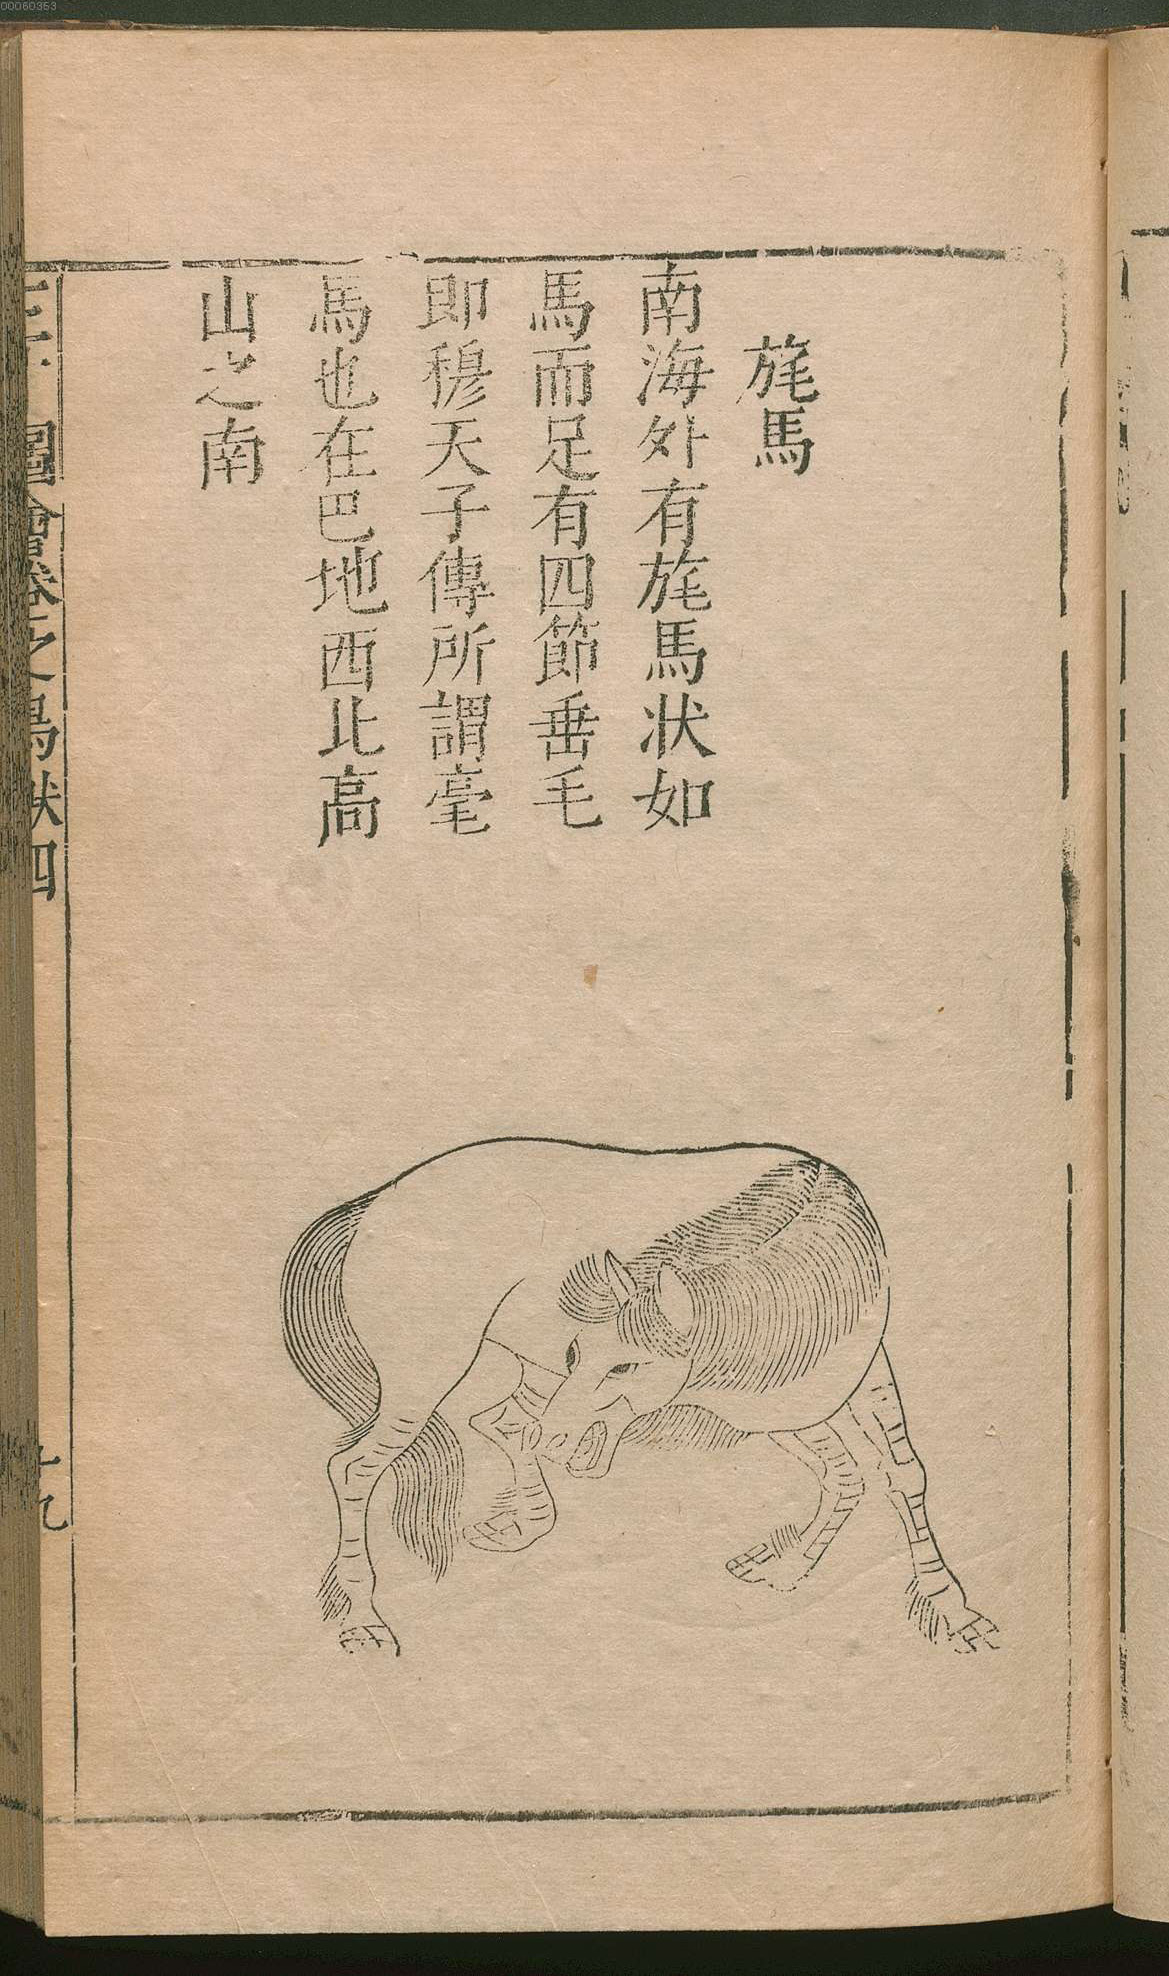 00060353
旄馬
南海外有旄馬狀如
馬而足有四節垂毛
即穆天子傳所謂毫
馬也在巴地西北高
山之南
圖會卷之鳥獸四
十九